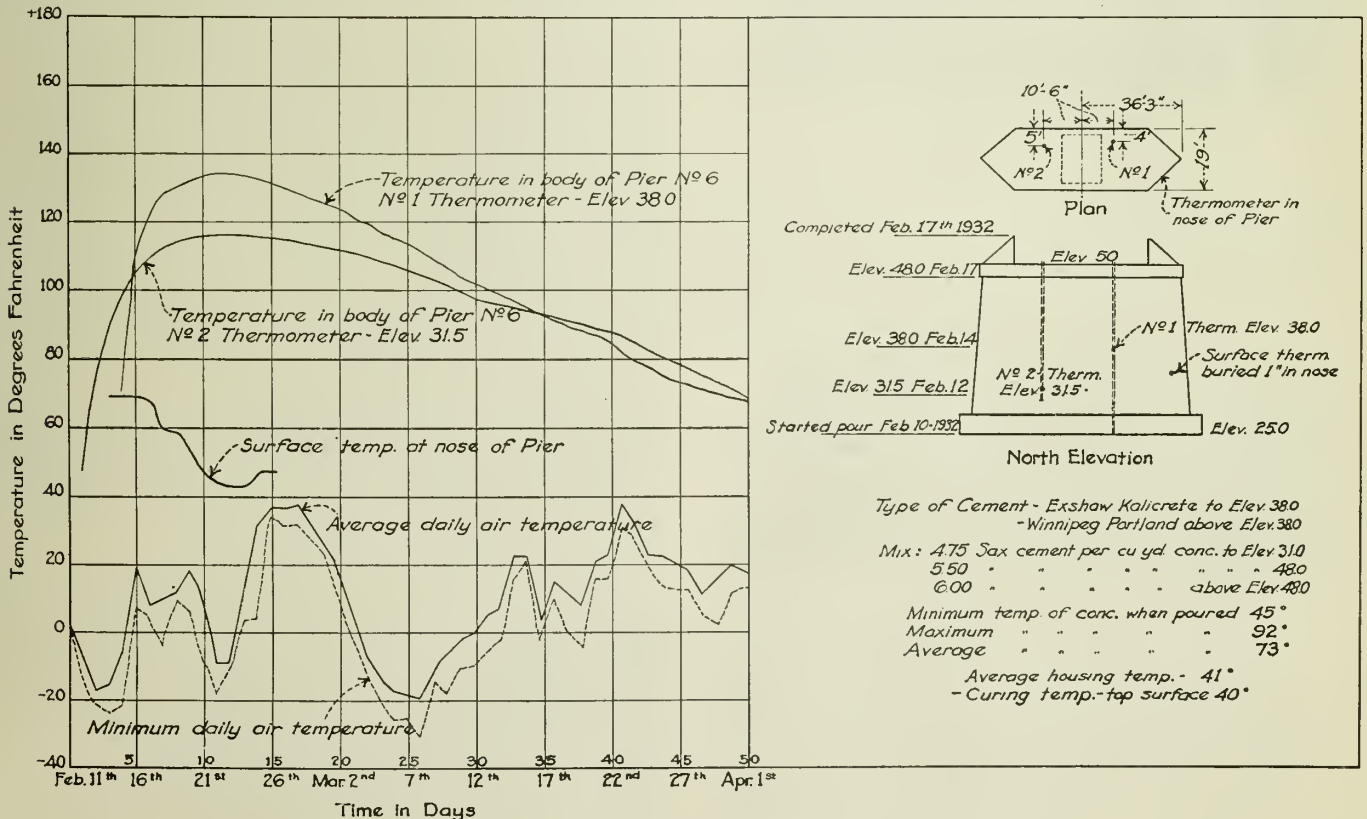 +180
160
140
120
100
80
60
40
20
0
-20
-40
Temperature in Degrees Fahrenheit
Temperature in body of Pier Nº 6
Nº 1 Thermometer - Elev 38.0
Temperature in body of Pier Nº 6
Nº 2 Thermometer - Elev. 31.5
Surface temp. at nose of Pier
Average daily air temperature
Minimum daily air temperature
5 10 15 20 25 30 35 40 45 50
Feb. 11th 16th 21st 26th Mar. 2nd 7th 12th 17th 22nd 27th Apr. 1st
Time in Days
10'-6"
36'-3"
5'
4'
19'
Nº 2
Nº 1
Plan
Thermometer in
nose of Pier
Completed Feb. 17th 1932
Elev 50
Elev. 48.0 Feb. 17
Nº 1 Therm. Elev. 38.0
Elev. 38.0 Feb. 14
Surface therm.
buried 1" in nose
Nº 2 Therm.
Elev. 31.5
Elev 31.5 Feb. 12
Started pour Feb 10-1932
Elev. 25.0
North Elevation
Type of Cement - Exshaw Kalicrete to Elev. 38.0
- Winnipeg Portland above Elev. 38.0
Mix: 4.75 Sax cement per cu yd. conc. to Elev 31.0
5.50 " " " " " " " " 48.0
6.00 " " " " " above Elev. 48.0
Minimum temp. of conc. when poured 45°
Maximum " " " " " 92°
Average " " " " " 73°
Average housing temp. - 41°
- Curing temp. - top surface 40°